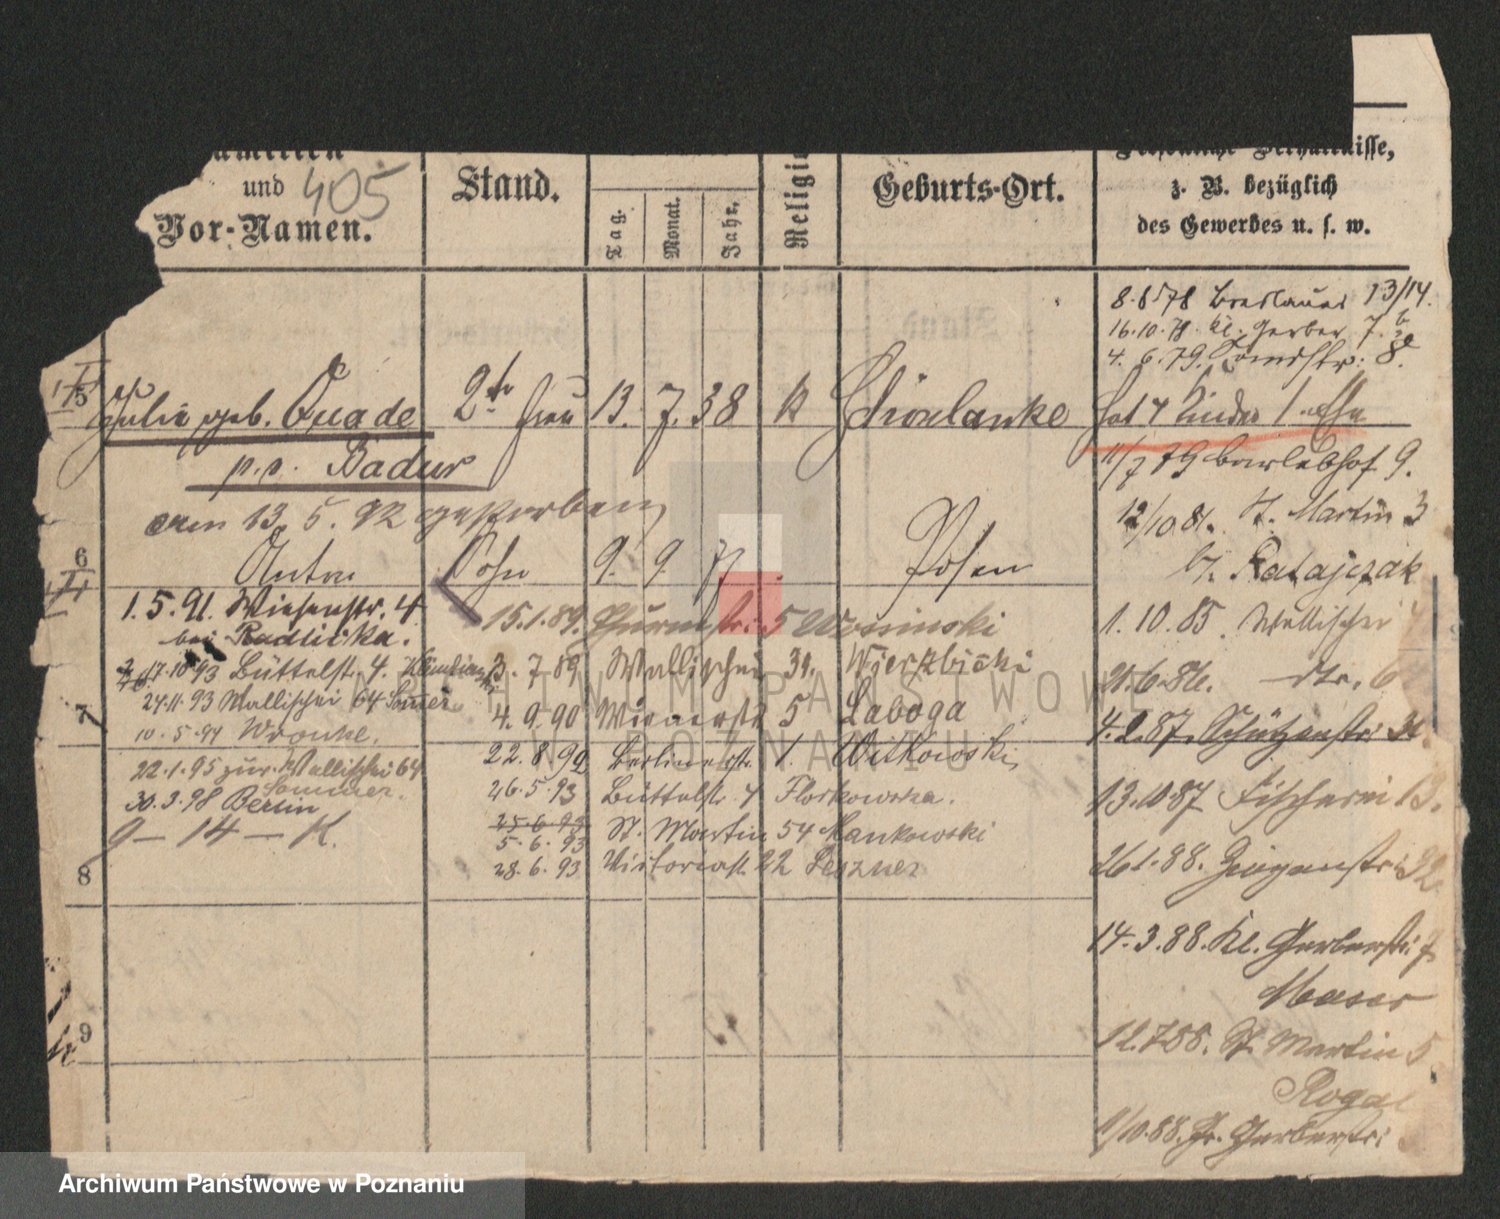 und 405
Vor-Namen.
Stand.
Tag.
Monat.
Jahr.
Religio
Geburts-Ort.
Persönliche Verhältnisse,
z. B. bezüglich
des Gewerbes u. s. w.
8.8.78 Breslauer 13/14.
16.10.78. kl. Gerber 7.
4. 6. 79. 8.
5 Julie geb. Quade 2te Frau 13. 7. 38 k Schönlanke hat 4 Kinder 1. Ehe
p.v. Badur
11/7 79 9.
am 13. 5. 92 gestorben
12/10 81. St. Martin 3
b/. Ratajczak
6 Anton Sohn 9. 9. 77 Posen
1.5.91. Wiesenstr. 4
bei Radlicka.
15.1.89. Thurmstr. 5
1. 10. 85. Wallischei
17.10.93 Büttelstr. 4.
3. 7. 89 Wallischei 31. Wierzbicki
21.6.86. dto. 6
24.11.93 Wallischei 64 Sommer
7
4. 9. 90 Wienerstr. 5 Laboga
4.2.87. Schützenstr. 31.
10.5.94 Wronke.
22. 8. 92 Berlinerstr. 1. Witkowski
22.1.95 zur. Wallischei 64
Sommer.
26. 5. 93 Büttelstr. 4 Florkowska.
13.10.87 Fischerei 13.
30.3.98 Berlin
9 – 14 – K.
25.6.93 St. Martin 54 Mankowski
5. 6. 93
8
28. 6. 93 Victoriastr. 22 Leszner
26.1.88. Ziegenstr. 22
14.3.88. Kl. Gerberstr. 7
Maser
9
12.7.88. St. Martin 5
Rogal
1/10.88. Gr. Gerberstr.
ARCHIWUM PAŃSTWOWE
W POZNANIU
Archiwum Państwowe w Poznaniu